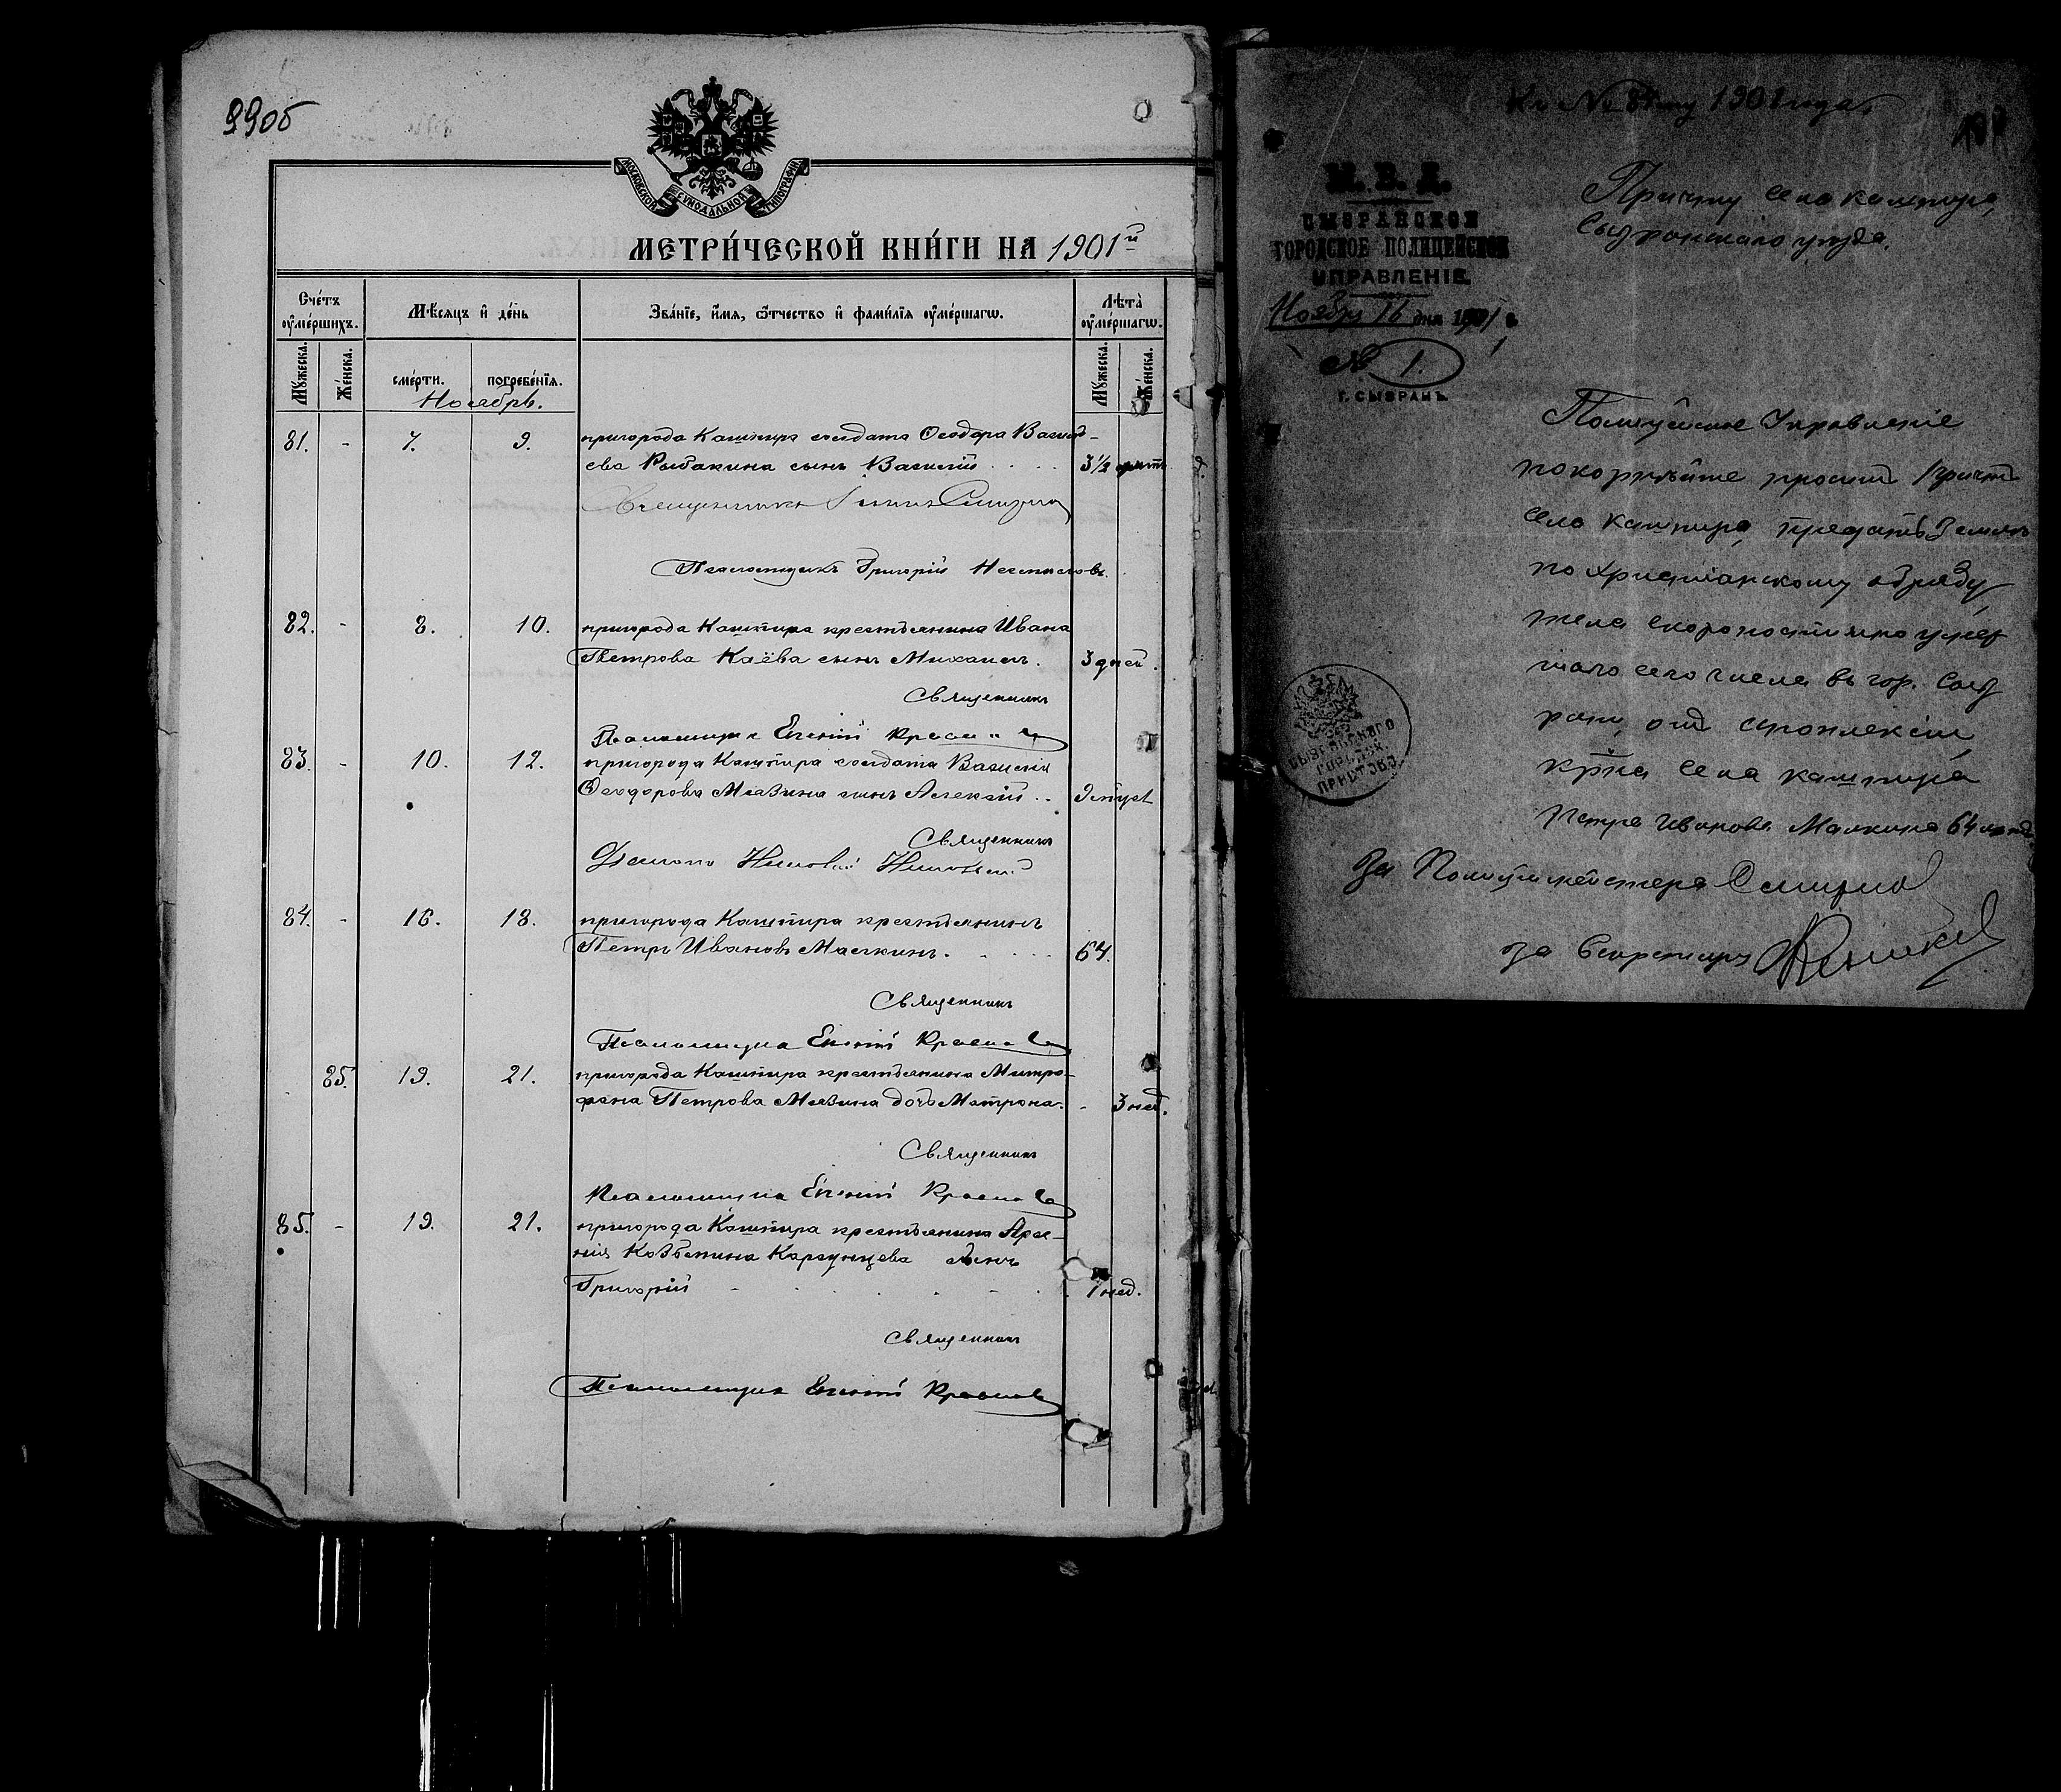 99об
МОСКОВСКОЙ СѴНОДАЛЬНОЙ ТИПОГРАФІИ
МЕТРИ́ЧЕСКОЙ КНИ́ГИ НА 1901й
Сче́тъ ѹме́ршихъ.
Мѣ́сяцъ и де́нь
Зва́нїе, и́мя, ѻ҆́тчество и фами́лїя ѹме́ршагѡ.
Лѣта̀ ѹме́ршагѡ.
Мꙋ́жеска.
Же́нска.
сме́рти.
погребе́нїя.
Мꙋ́жеска.
Же́нска.
Ноябрь.
81. - 7. 9. пригорода Кашпира солдата Ѳеодора Василь-
ева Рыбакина сынъ Василій . . . . 3½
Священникъ
Псаломщикъ Григорій
82. - 8. 10. пригорода Кашпира крестьянина Ивана
Петрова Каёва сынъ Михаилъ. 3 дней.
Священникъ
Псаломщикъ Евгеній
83. - 10. 12. пригорода Кашпира солдата Василія
Ѳеодорова Мязина сынъ Алексій . .
Священникъ
84. - 16. 18. пригорода Кашпира крестьянинъ
Петръ Ивановъ Малкинъ. . . . . 64.
Священникъ
Псаломщикъ Евгеній
85. 19. 21. пригорода Кашпира крестьянина Митро-
фана Петрова Мязина дочь Матрона. - 3 нед.
Священникъ
Псаломщикъ Евгеній
85. - 19. 21. пригорода Кашпира крестьянина Арсе-
нія Козьмина сынъ
Григорій 1 нед.
Священникъ
Псаломщикъ Евгеній
Къ № 84му 1901 года.
М. В. Д.
СЫЗРАНСКОЕ
ГОРОДСКОЕ ПОЛИЦЕЙСКОЕ
УПРАВЛЕНІЕ.
Ноября 16 дня 1901 г.
№ 1.
Г. СЫЗРАНЬ.
Причту села Кашпира,
Сызранскаго уѣзда.
Полицейское Управленіе
покорнѣйше проситъ причтъ
села Кашпира, предать землѣ
по христіанскому обряду
тело скоропостижно умер
шаго сего числа въ гор. Сыз
рани, отъ апоплексіи,
кр-на села Кашпира
Петра Иванова Малкина 64 лѣтъ
За Полицеймейстера
за Секретаря